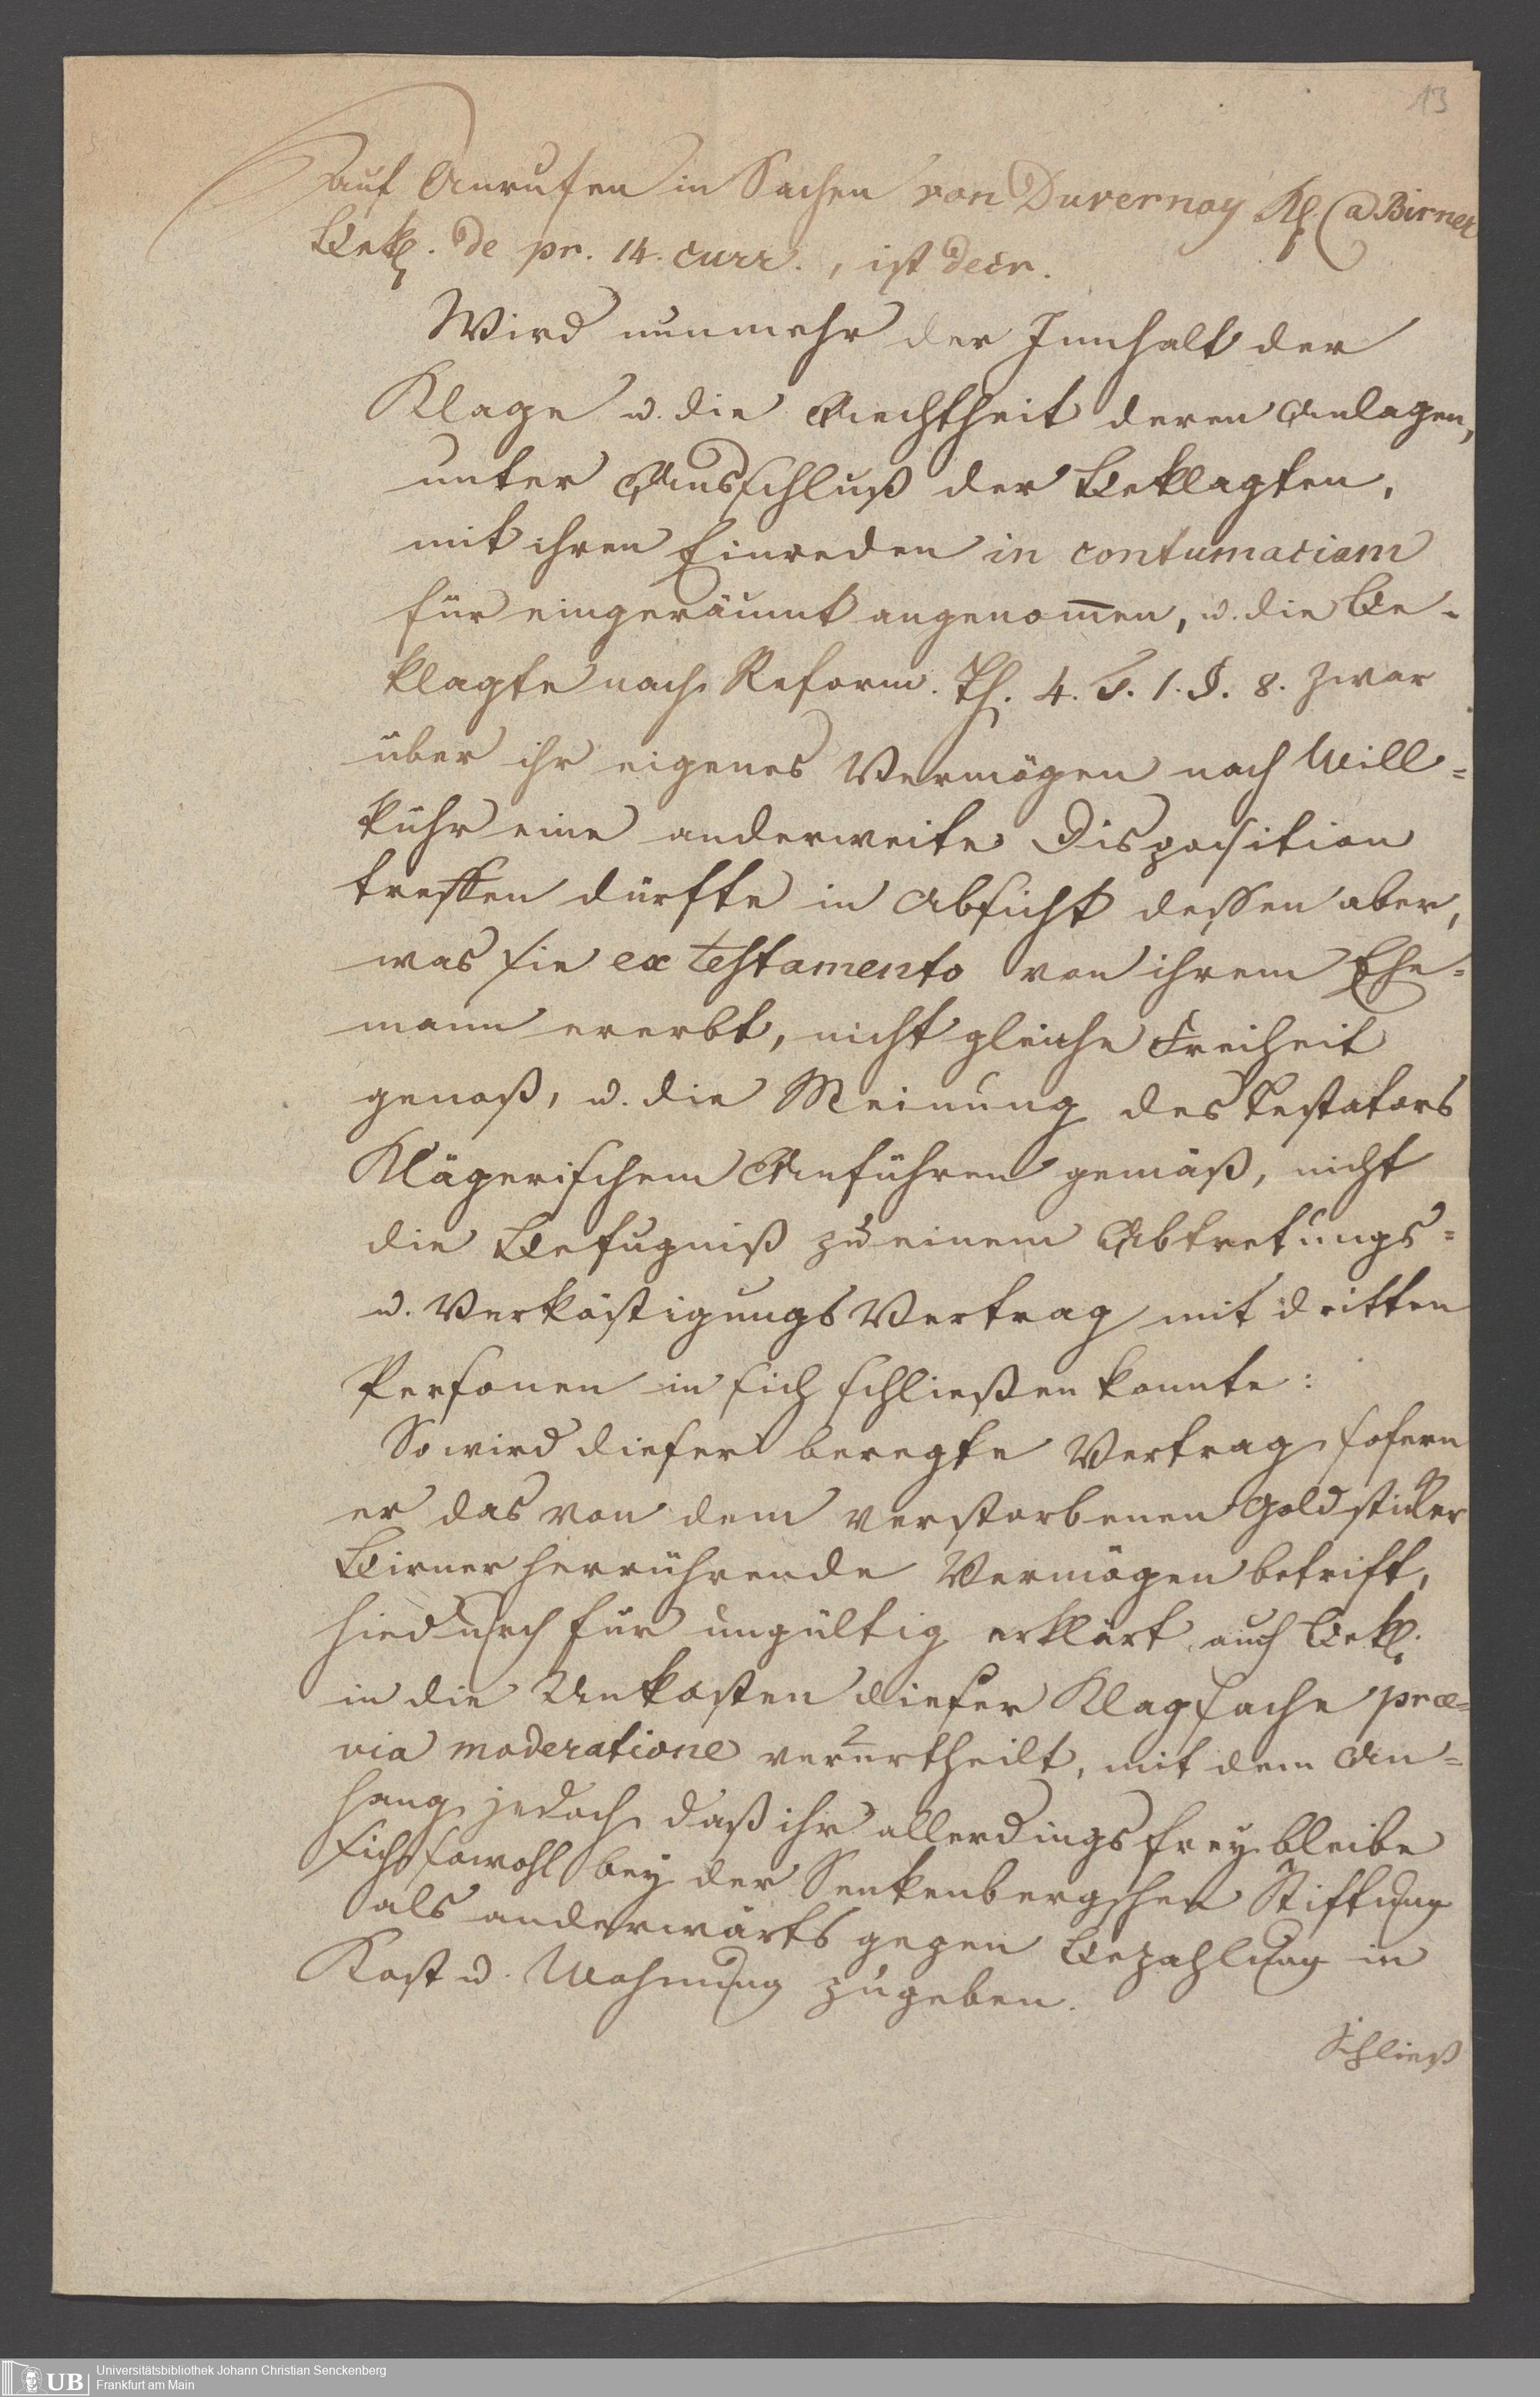 13
auf Anrufen in Sachen von Duvernoy Kl. Ca Birner
Bekl. de pr. 14. curr., ist decr.
Wird nunmehr der Innhalt der
Klage u. die Aechtheit deren Anlagen,
unter Ausschluß der Beklagten,
mit ihren Einreden in contumaciam
für eingeräumt angenom̅en, u. die Be-
klagte nach Reform. Th. 4. T. 1. §. 8. zwar
über ihr eigenes Vermögen nach Will=
kuhr eine anderweite Disposition
treffen dürfte in Absicht dessen aber,
was sie ex testamento von ihrem Ehe=
mann ererbt, nicht gleiche Freiheit
genoß, u. die Meinung des Testators
Klägerischem Anführen gemäß, nicht
die Befugniß zu einem Abtretungs=
u. Verköstigungs Vertrag mit dritten
Personen in sich schließen konnte:
So wird dieser beregte Vertrag, sofern
er das von dem verstorbenen Goldsticker
Birner herrührende Vermögen betrift,
hiedurch für ungültig erklärt, auch Bekl.
in die Unkosten dieser Klagsache præ=
via moderatione verurtheilt, mit dem An=
hang jedoch, daß ihr allerdings frey bleibe
sich sowohl bey der Senkenbergschen Stiftung
als anderwärts gegen Bezahlung in
Kost u. Wohnung zugeben.
Schließ
UB
Universitätsbibliothek Johann Christian Senckenberg
Frankfurt am Main